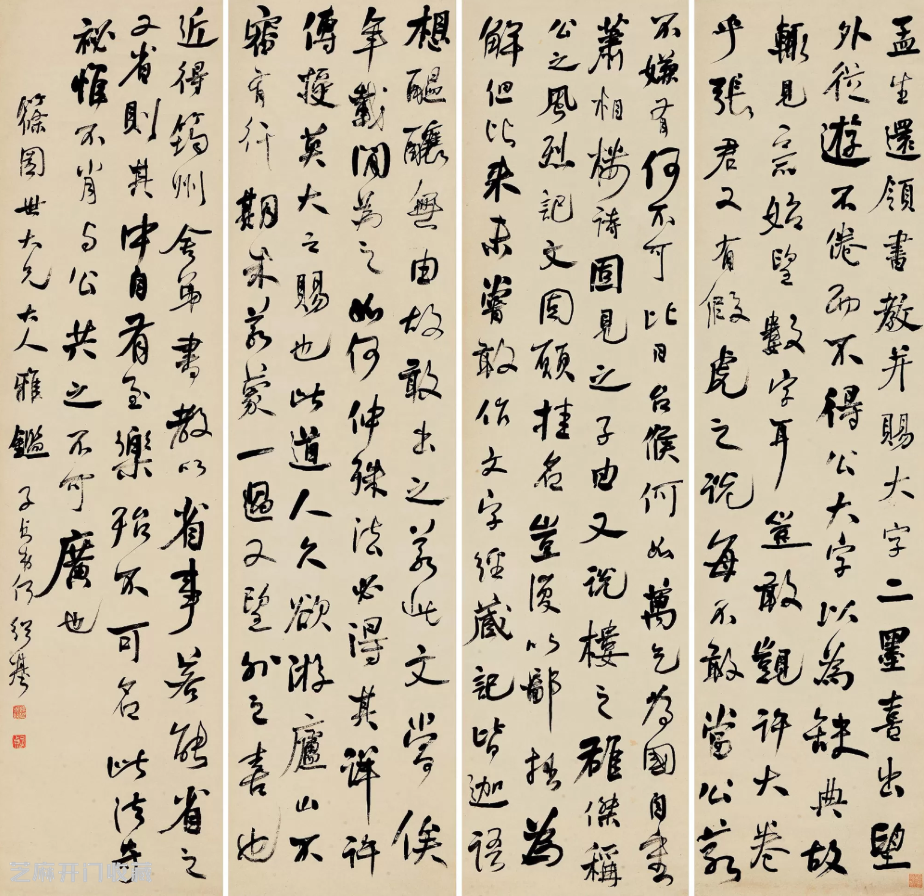 孟生還領書教并賜大字二墨喜出望
外從遊不倦而不得公大字以為缺典故
輒見示始望數字耳豈敢覬許大卷
乎張君又有假虎之說每不敢當公若
不嫌有何不可比日台候何如萬乞為國自重
蕭相樓詩固見之子由又說樓之雄傑稱
公之風烈記文固願挂名豈復以鄙拙為
解但比來未嘗敢作文字經藏記皆迦語
想醞釀無由故敢出之若此文嘗俟
年載間為之如何仲殊法必得其詳許
傳授莫大之賜也此道人久欲游廬山不
審有行期未若蒙一過又望外之喜也
近得筠州舍弟書教以省事若能省之
又省則其中自有至樂殆不可名此法奇
祕惟不肖与公共之不可廣也
篠園世大兄大人雅鑑 子貞弟何紹基
芝麻开门收藏